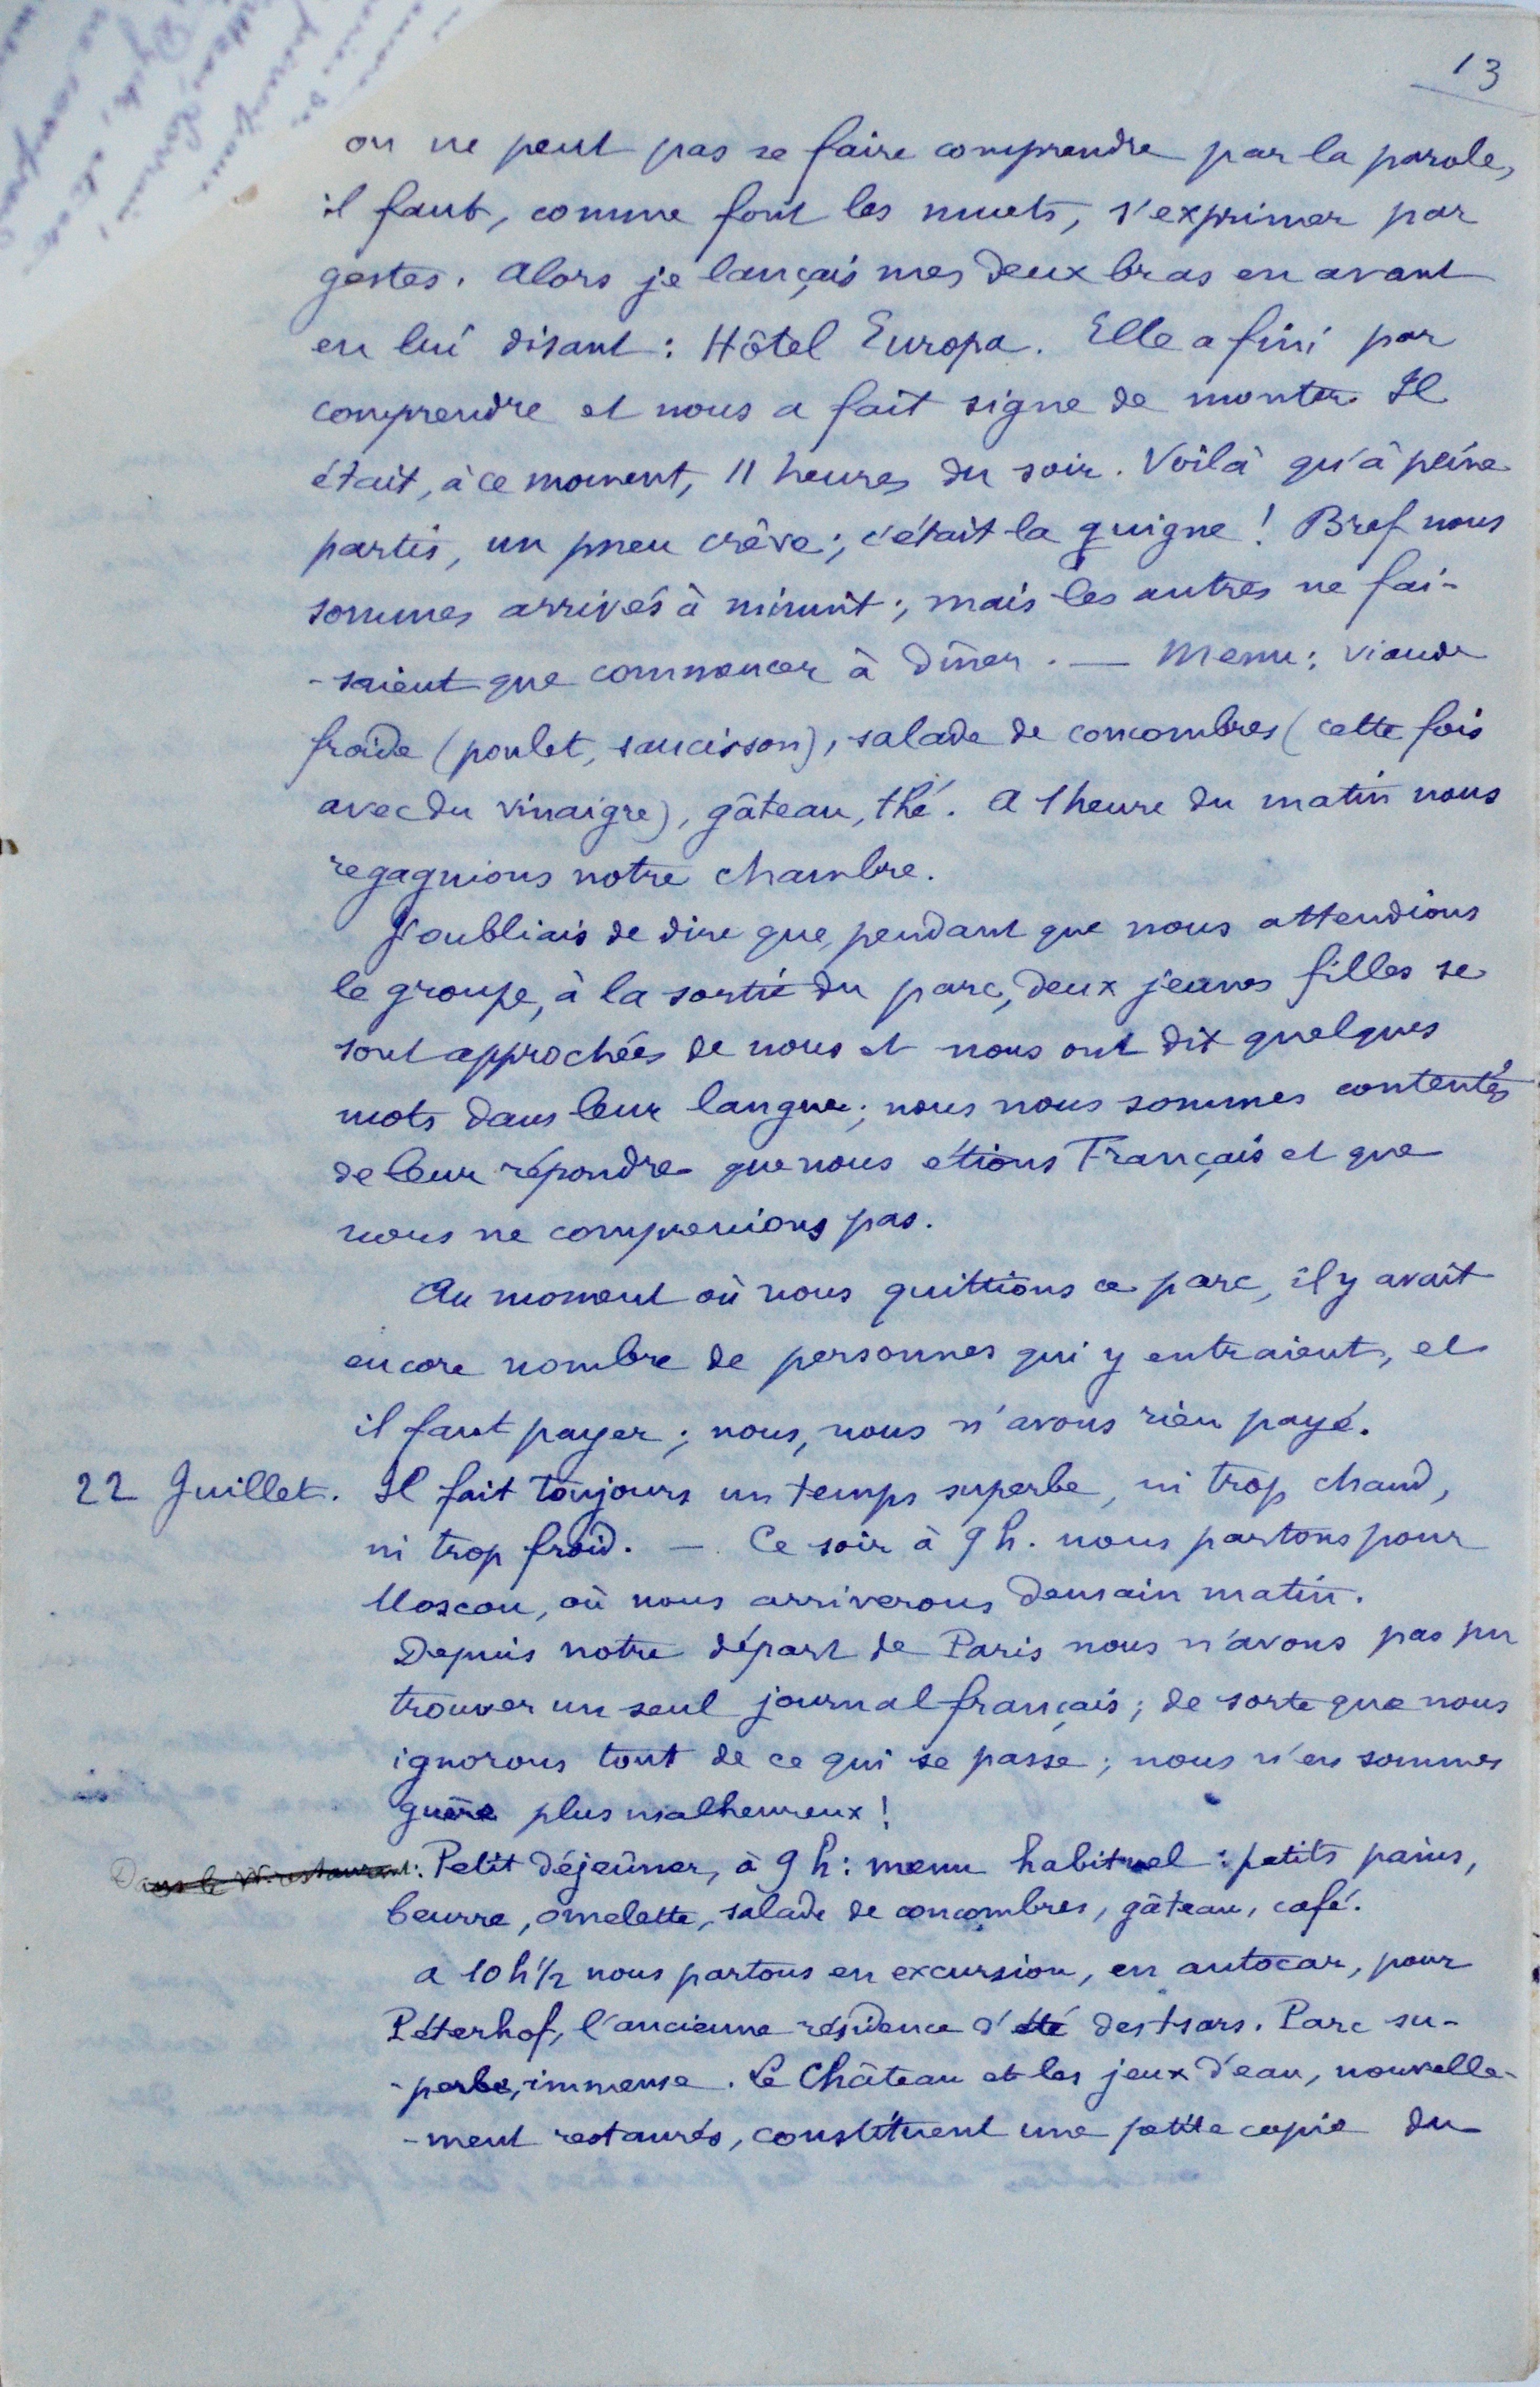 13
on ne peut pas se faire comprendre par la parole,
il faut, comme font les muets, s'exprimer par
gestes. Alors je lançais mes deux bras en avant
en lui disant : Hôtel Europa. Elle a fini par
comprendre et nous a fait signe de monter. Il
était, à ce moment, 11 heures du soir. Voilà qu'à peine
partis, un pneu crêve ; c'était la guigne ! Bref nous
sommes arrivés à minuit ; mais les autres ne fai-
-saient que commencer à dîner. — Menu : viande
froide (poulet, saucisson), salade de concombres (cette fois
avec du vinaigre), gâteau, thé. A 1 heure du matin nous
regagnions notre chambre.
J'oubliais de dire que, pendant que nous attendions
le groupe, à la sortie du parc, deux jeunes filles se
sont approchées de nous et nous ont dit quelques
mots dans leur langue ; nous nous sommes contentés
de leur répondre que nous étions Français et que
nous ne comprenions pas.
Au moment où nous quittions ce parc, il y avait
encore nombre de personnes qui y entraient, et
il faut payer ; nous, nous n'avons rien payé.
22 Juillet. Il fait toujours un temps superbe, ni trop chaud,
ni trop froid. — Ce soir à 9 h. nous partons pour
Moscou, où nous arriverons demain matin.
Depuis notre départ de Paris nous n'avons pas pu
trouver un seul journal français ; de sorte que nous
ignorons tout de ce qui se passe ; nous n'en sommes
guère plus malheureux !
Dans le W. restaurant : Petit déjeûner, à 9 h : menu habituel : petits pains,
beurre, omelette, salade de concombres, gâteau, café.
A 10 h 1/2 nous partons en excursion, en autocar, pour
Péterhof, l'ancienne résidence d'été des tsars. Parc su-
-perbe, immense. Le Château et les jeux d'eau, nouvelle-
-ment restaurés, constituent une petite copie du